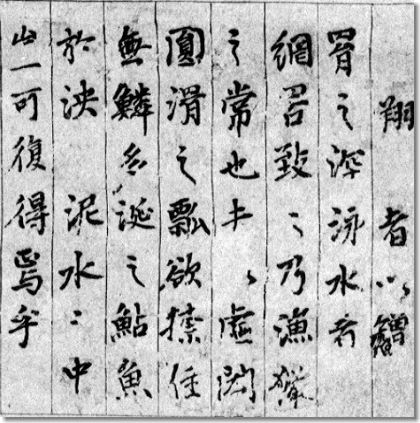 翔者以矰
罥之深泳水者
網罟致之乃漁獵
之常也虛濶
圓滑之瓢欲捺住
無鱗多涎之鮎魚
於泱泥水之中
可復得焉乎